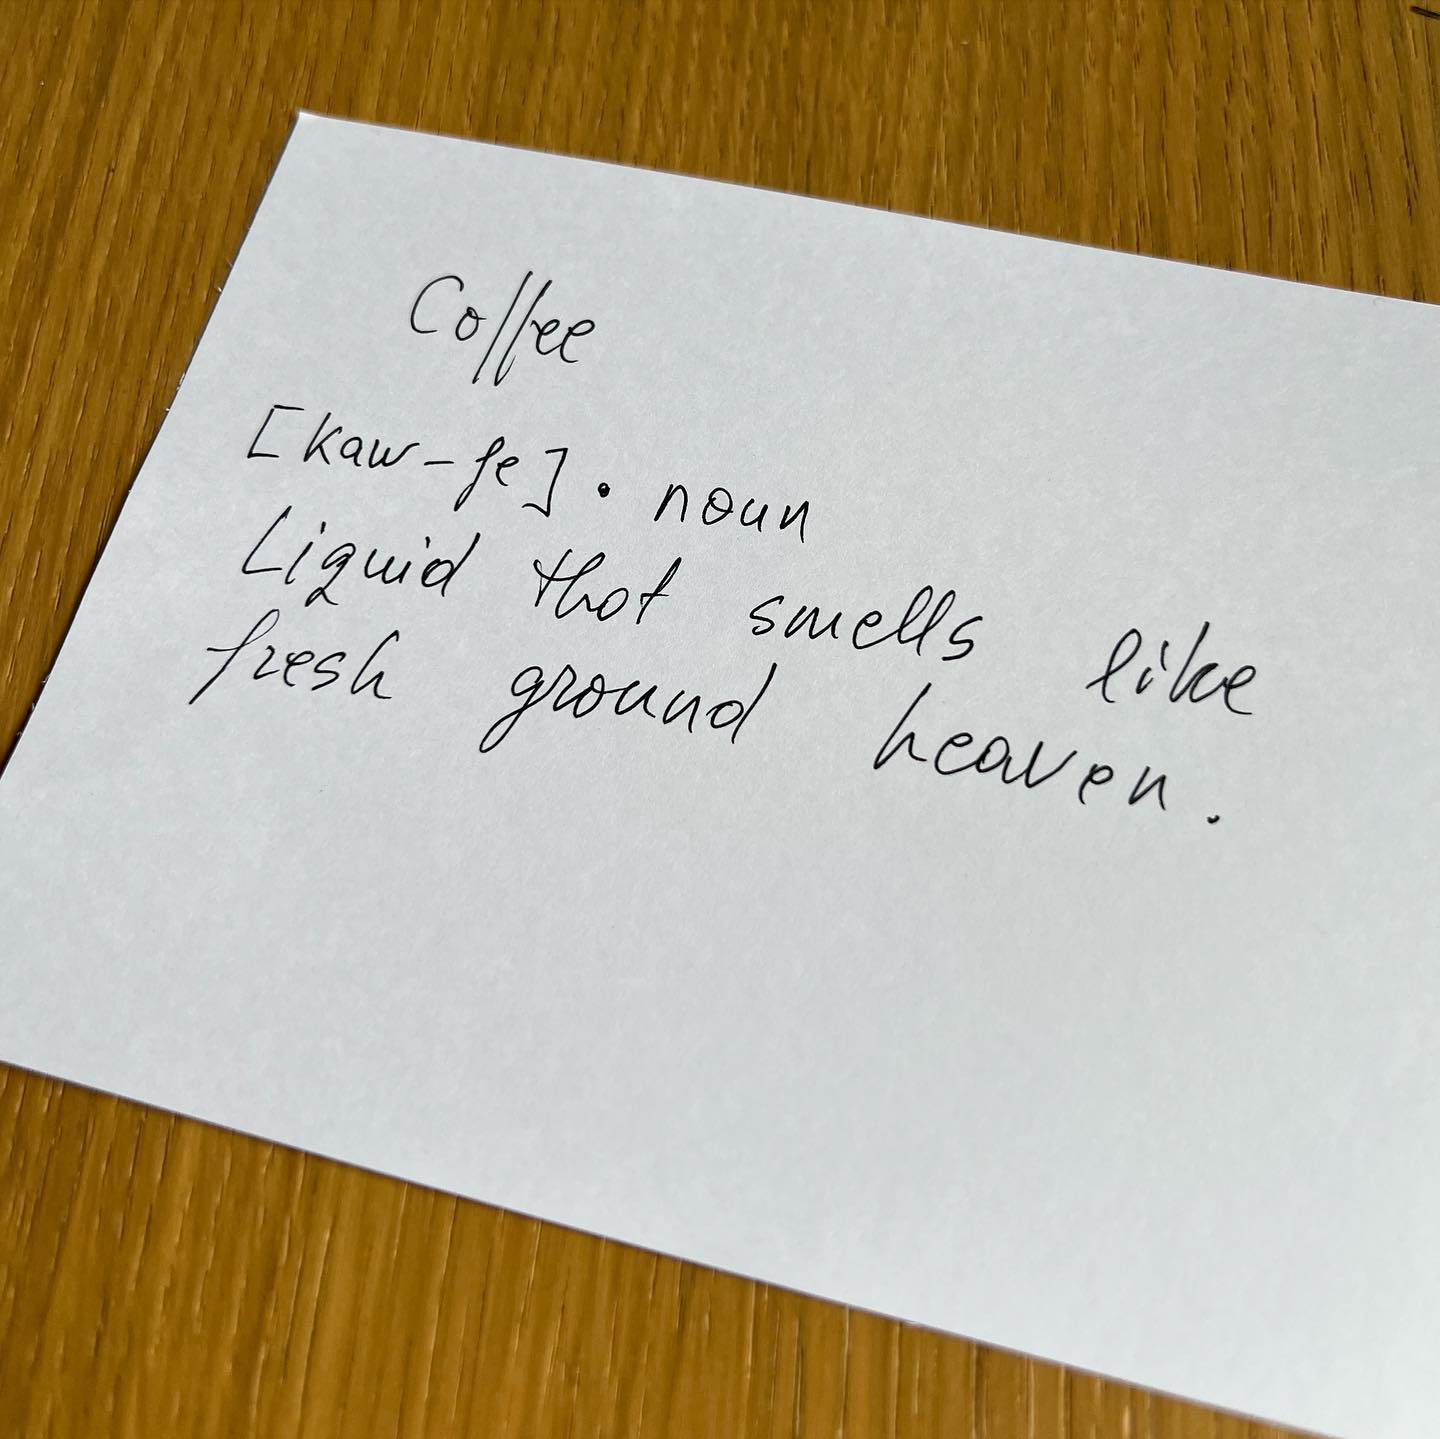 Coffee
[kaw-fe] • noun
Liquid that smells like
fresh ground heaven.